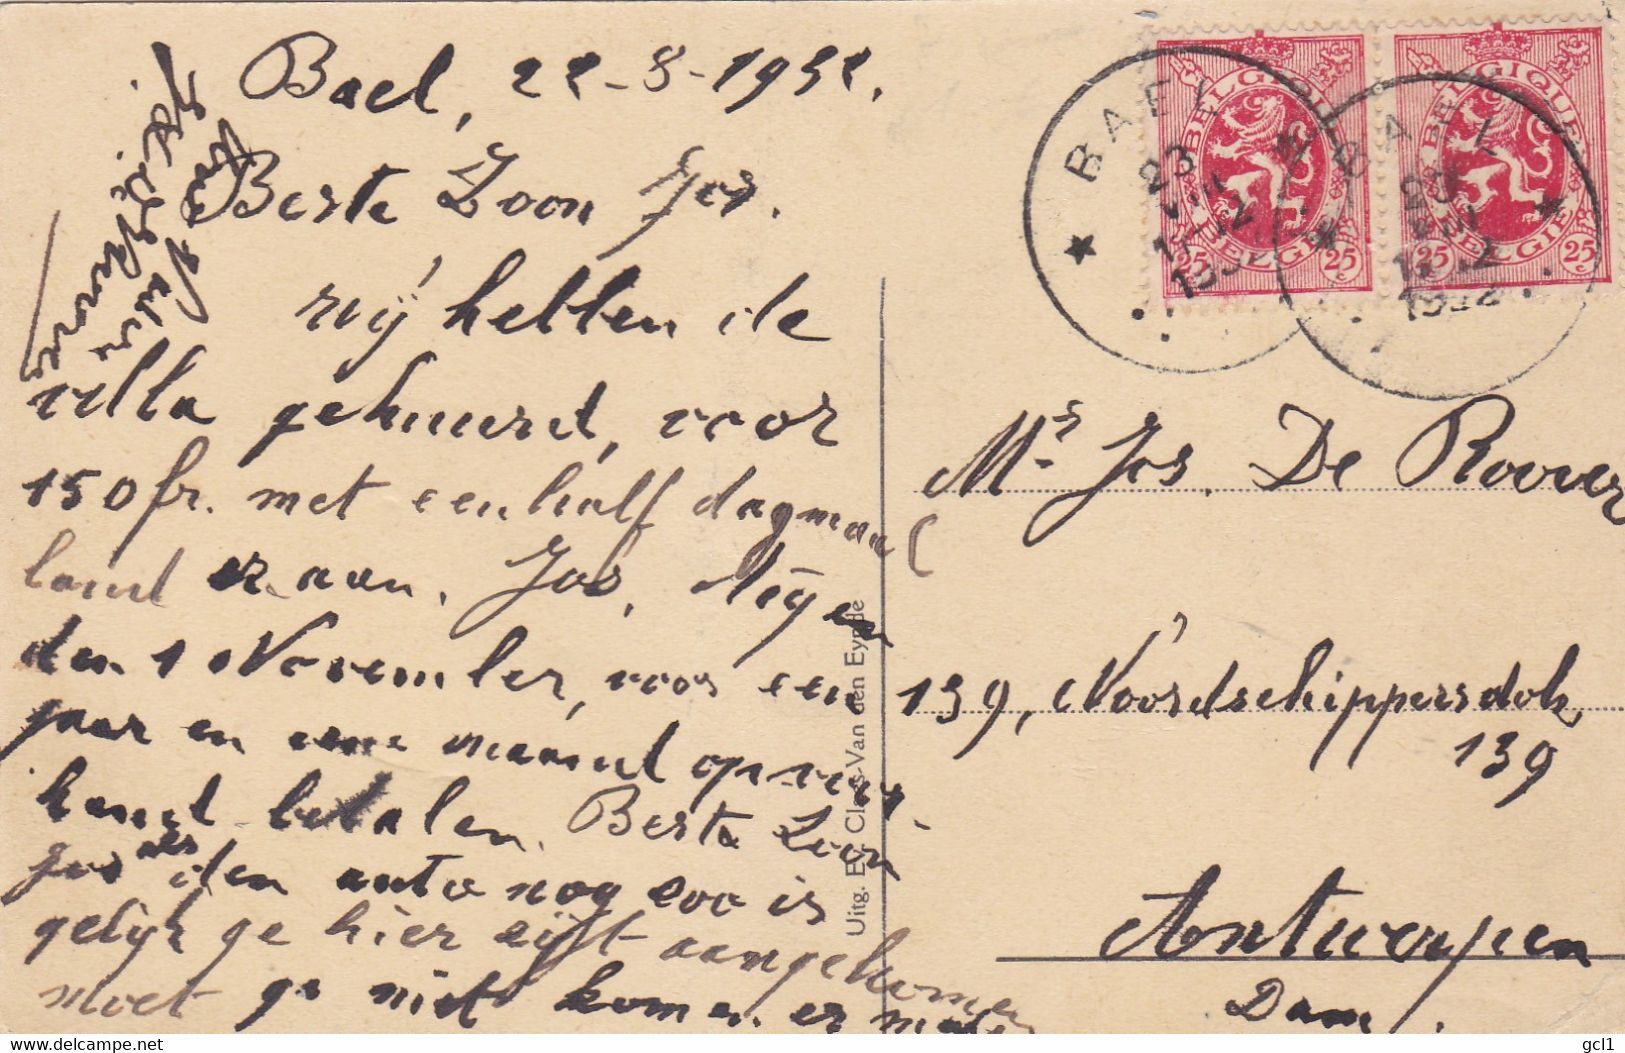 Bael, 22-8-1932.
Beste Zoon Jos.
wij hebben de
villa gehuurd, voor
150 fr. met een half dagmaal
land er aan. Jos, tegen
den 1 November, voor een
jaar en eene maand op voor
hand betalen. Beste Zoon
Jos als den auto nog zoo is
gelijk ge hier zijt aangekomen
moet ge niet komen er mede
Uw Vader
De Roover
BAEL
23
VIII
11-12
1932
BAEL
23
VIII
11-12
1932
BELGIQUE
BELGIE
25 25
BELGIQUE
BELGIE
25 25
Mr. Jos. De Roover
139, Noordschippersdok
139
Antwerpen
Dam.
Uitg. Ev. Claes-Van den Eynde
www.delcampe.net
gcl1